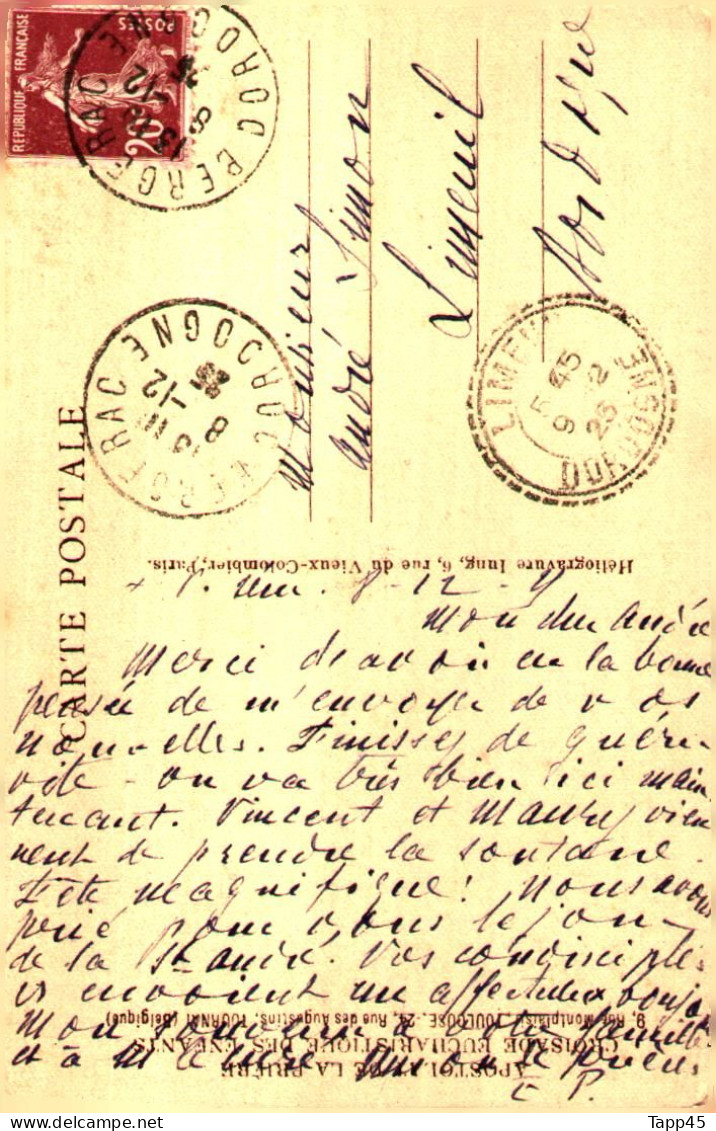 RÉPUBLIQUE FRANÇAISE
POSTES
20
BERGERAC DORDOGNE
8 -12 25
BERGERAC DORDOGNE
8 -12
CARTE POSTALE
Monsieur
André Simon
Limeuil
Dordogne
5 45
9 -2
25
DORDOGNE
Héliogravure Iung, 6, rue du Vieux-Colombier, Paris.
8-12-
Mon cher André
Merci de avoir eu la bonne
pensée de m'envoyer de vos
nouvelles. Finissez de guérir
vite - on va très bien ici main
tenant. Vincent et Maury vien
nent de prendre la soutane.
Fête magnifique! Nous avons
prié pour vous le jour
de la St André. Vos condisciples
envoient un affectueux
Mon souvenir à votre famille
et à M le curé
P.
APOSTOLAT DE LA PRIÈRE
CROISADE EUCHARISTIQUE DES ENFANTS
9, Rue Montplaisir, TOULOUSE - 24, Rue des Augustins, TOURNAI (Belgique)
Tapp45